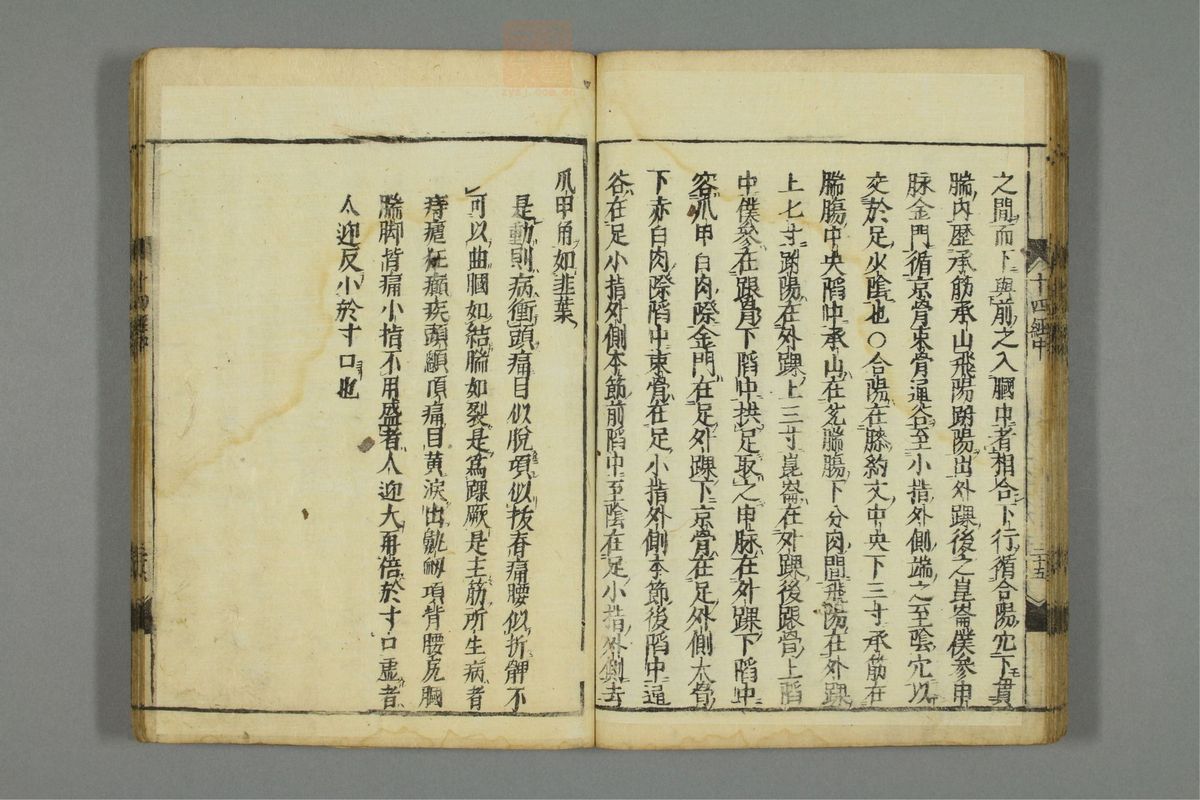 之間而下與前之入膕中者相合下行循合陽穴下貫
腨內歷承筋承山飛陽跗陽出外踝後之崑崙僕參申
脉金門循京骨束骨通谷至小指外側端之至陰穴以
交於足少陰也○合陽在膝約文中央下三寸承筋在
腨腸中央陷中承山在兊腨腸下分肉間飛陽在外踝
上七寸跗陽在外踝上三寸崑崙在外踝後跟骨上陷
中僕參在跟骨下陷中拱足取之申脉在外踝下陷中
容爪甲白肉際金門在足外踝下京骨在足外側大骨
下赤白肉際陷中束骨在足小指外側本節後陷中通
谷在足小指外側本節前陷中至陰在足小指外側去
爪甲角如韭葉
是動則病衝頭痛目似脫項似拔脊痛腰似折髀不
可以曲膕如結腨如裂是爲踝厥是主筋所生病者
痔瘧狂癲疾頭顖頂痛目黄淚出鼽衂項背腰尻膕
腨脚皆痛小指不用盛者人迎大再倍於寸口虛者
人迎反小於寸口也
十四經中
二十五